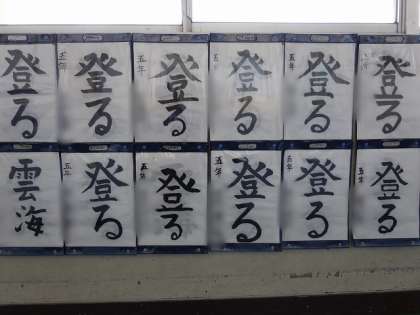 登る
五年 登る
五年 登る
五年 登る
五年 登る
登る
雲海
五年 登る
五年 登る
五年 登る
五年 登る
五年 登る